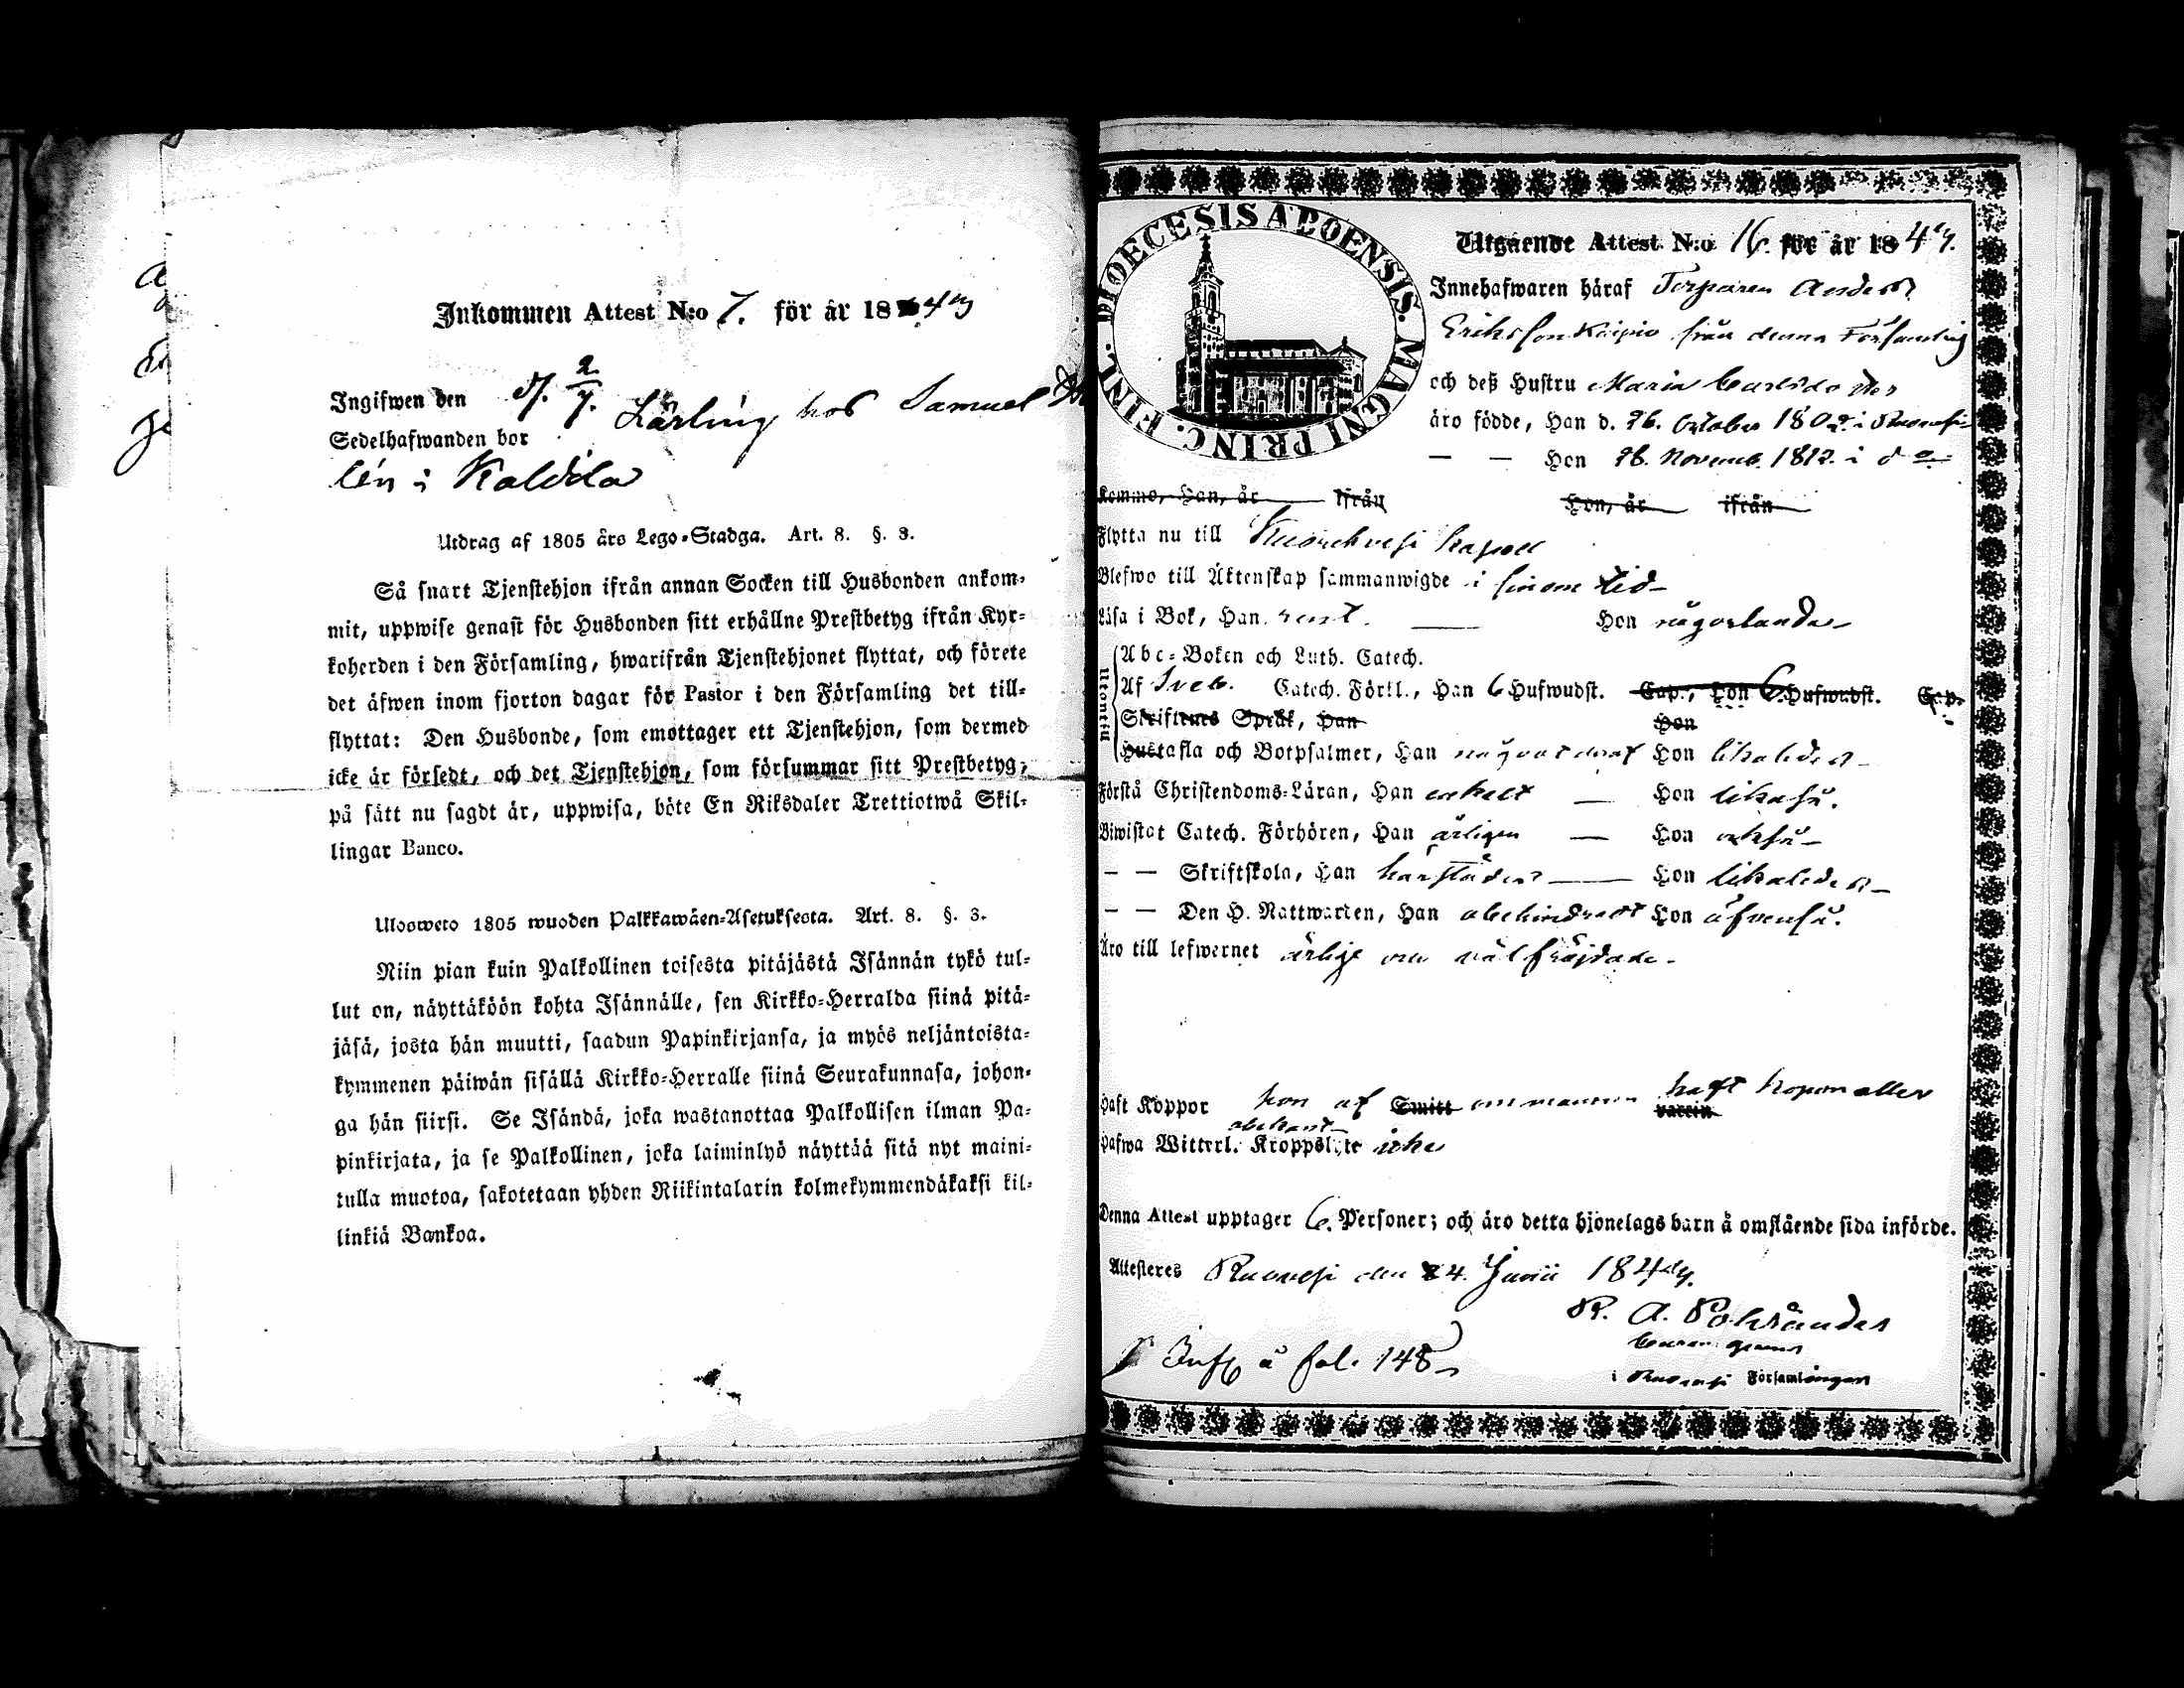 Inkommen Attest N:o 7. för år 1849
Ingifwen den d. 2/7.
Lärling hos Samuel
Sedelhafwanden bor
lén i Kaldila
Utdrag af 1805 års Lego-Stadga. Art. 8. §. 3.
Så snart Tjenstehjon ifrån annan Socken till Husbonden ankom-
mit, uppwise genast för Husbonden sitt erhållne Prestbetyg ifrån Kyr-
koherden i den Församling, hwarifrån Tjenstehjonet flyttat, och förete
det äfwen inom fjorton dagar för Pastor i den Församling det till-
flyttat: Den Husbonde, som emottager ett Tjenstehjon, som dermed
icke är försedt, och det Tjenstehjon, som försummar sitt Prestbetyg,
på sätt nu sagdt är, uppwisa, böte En Riksdaler Trettiotwå Skil-
lingar Banco.
Ulosweto 1805 wuoden Palkkawäen-Asetuksesta. Art. 8. §. 3.
Niin pian kuin Palkollinen toisesta pitäjästä Isännän tykö tul-
lut on, näyttäköön kohta Isännälle, sen Kirkko-Herralda siinä pitä-
jäsä, josta hän muutti, saadun Papinkirjansa, ja myös neljäntoista-
kymmenen päiwän sisällä Kirkko-Herralle siinä Seurakunnasa, johon-
ga hän siirsi. Se Isändä, joka wastanottaa Palkollisen ilman Pa-
pinkirjata, ja se Palkollinen, joka laiminlyö näyttää sitä nyt maini-
tulla muotoa, sakotetaan yhden Riikintalarin kolmekymmendäkaksi kil-
linkiä Bankoa.
DIOECESIS ABOENSIS. MAGNI PRINC. FINL.
Utgående Attest N:o 16. för år 1849.
Innehafwaren häraf Torparen Anders
Eriksson Kaipio från denna Församling
och deß Hustru Maria Carlsdotter
äro födde, Han d. 26. October 1802. i Ruovesi
— — Hon 28. Novemb. 1812. i do
Kommo, Han, år ifrån Hon, år ifrån
Flytta nu till Kuorehvesi Kapell
Blefwo till Äktenskap sammanwigde i sinom tid
Läsa i Bok, Han rent. — Hon någorlunda
Utantill
Abc-Boken och Luth. Catech.
Af Sveb. Catech. Förkl., Han 6 Hufwudst. Cap., Hon 6 Hufwudst. Cap.
Skriftenes Språk, Han Hon
Hustafla och Botpsalmer, Han något deraf Hon likaledes
Förstå Christendoms-Läran, Han enkelt — Hon likaså.
Biwistat Catech. Förhören, Han årligen — Hon också
— — Skriftskola, Han härstädes — Hon likaledes
— — Den H. Nattwarden, Han obehindradt Hon äfvenså.
Äro till lefwernet ärlige och välfräjdade
Haft Koppor hon af Smitt om mannen haft koppor eller vaccin
obekant
Hafwa Witterl. Kroppslyte icke
Denna Attest upptager 6. Personer; och äro detta hjonelags barn å omstående sida införde.
Attesteres Ruovesi den 24. Junii 1849.
R. A. Polviander
i Ruovesi Församlingen
Inf. å fol. 148